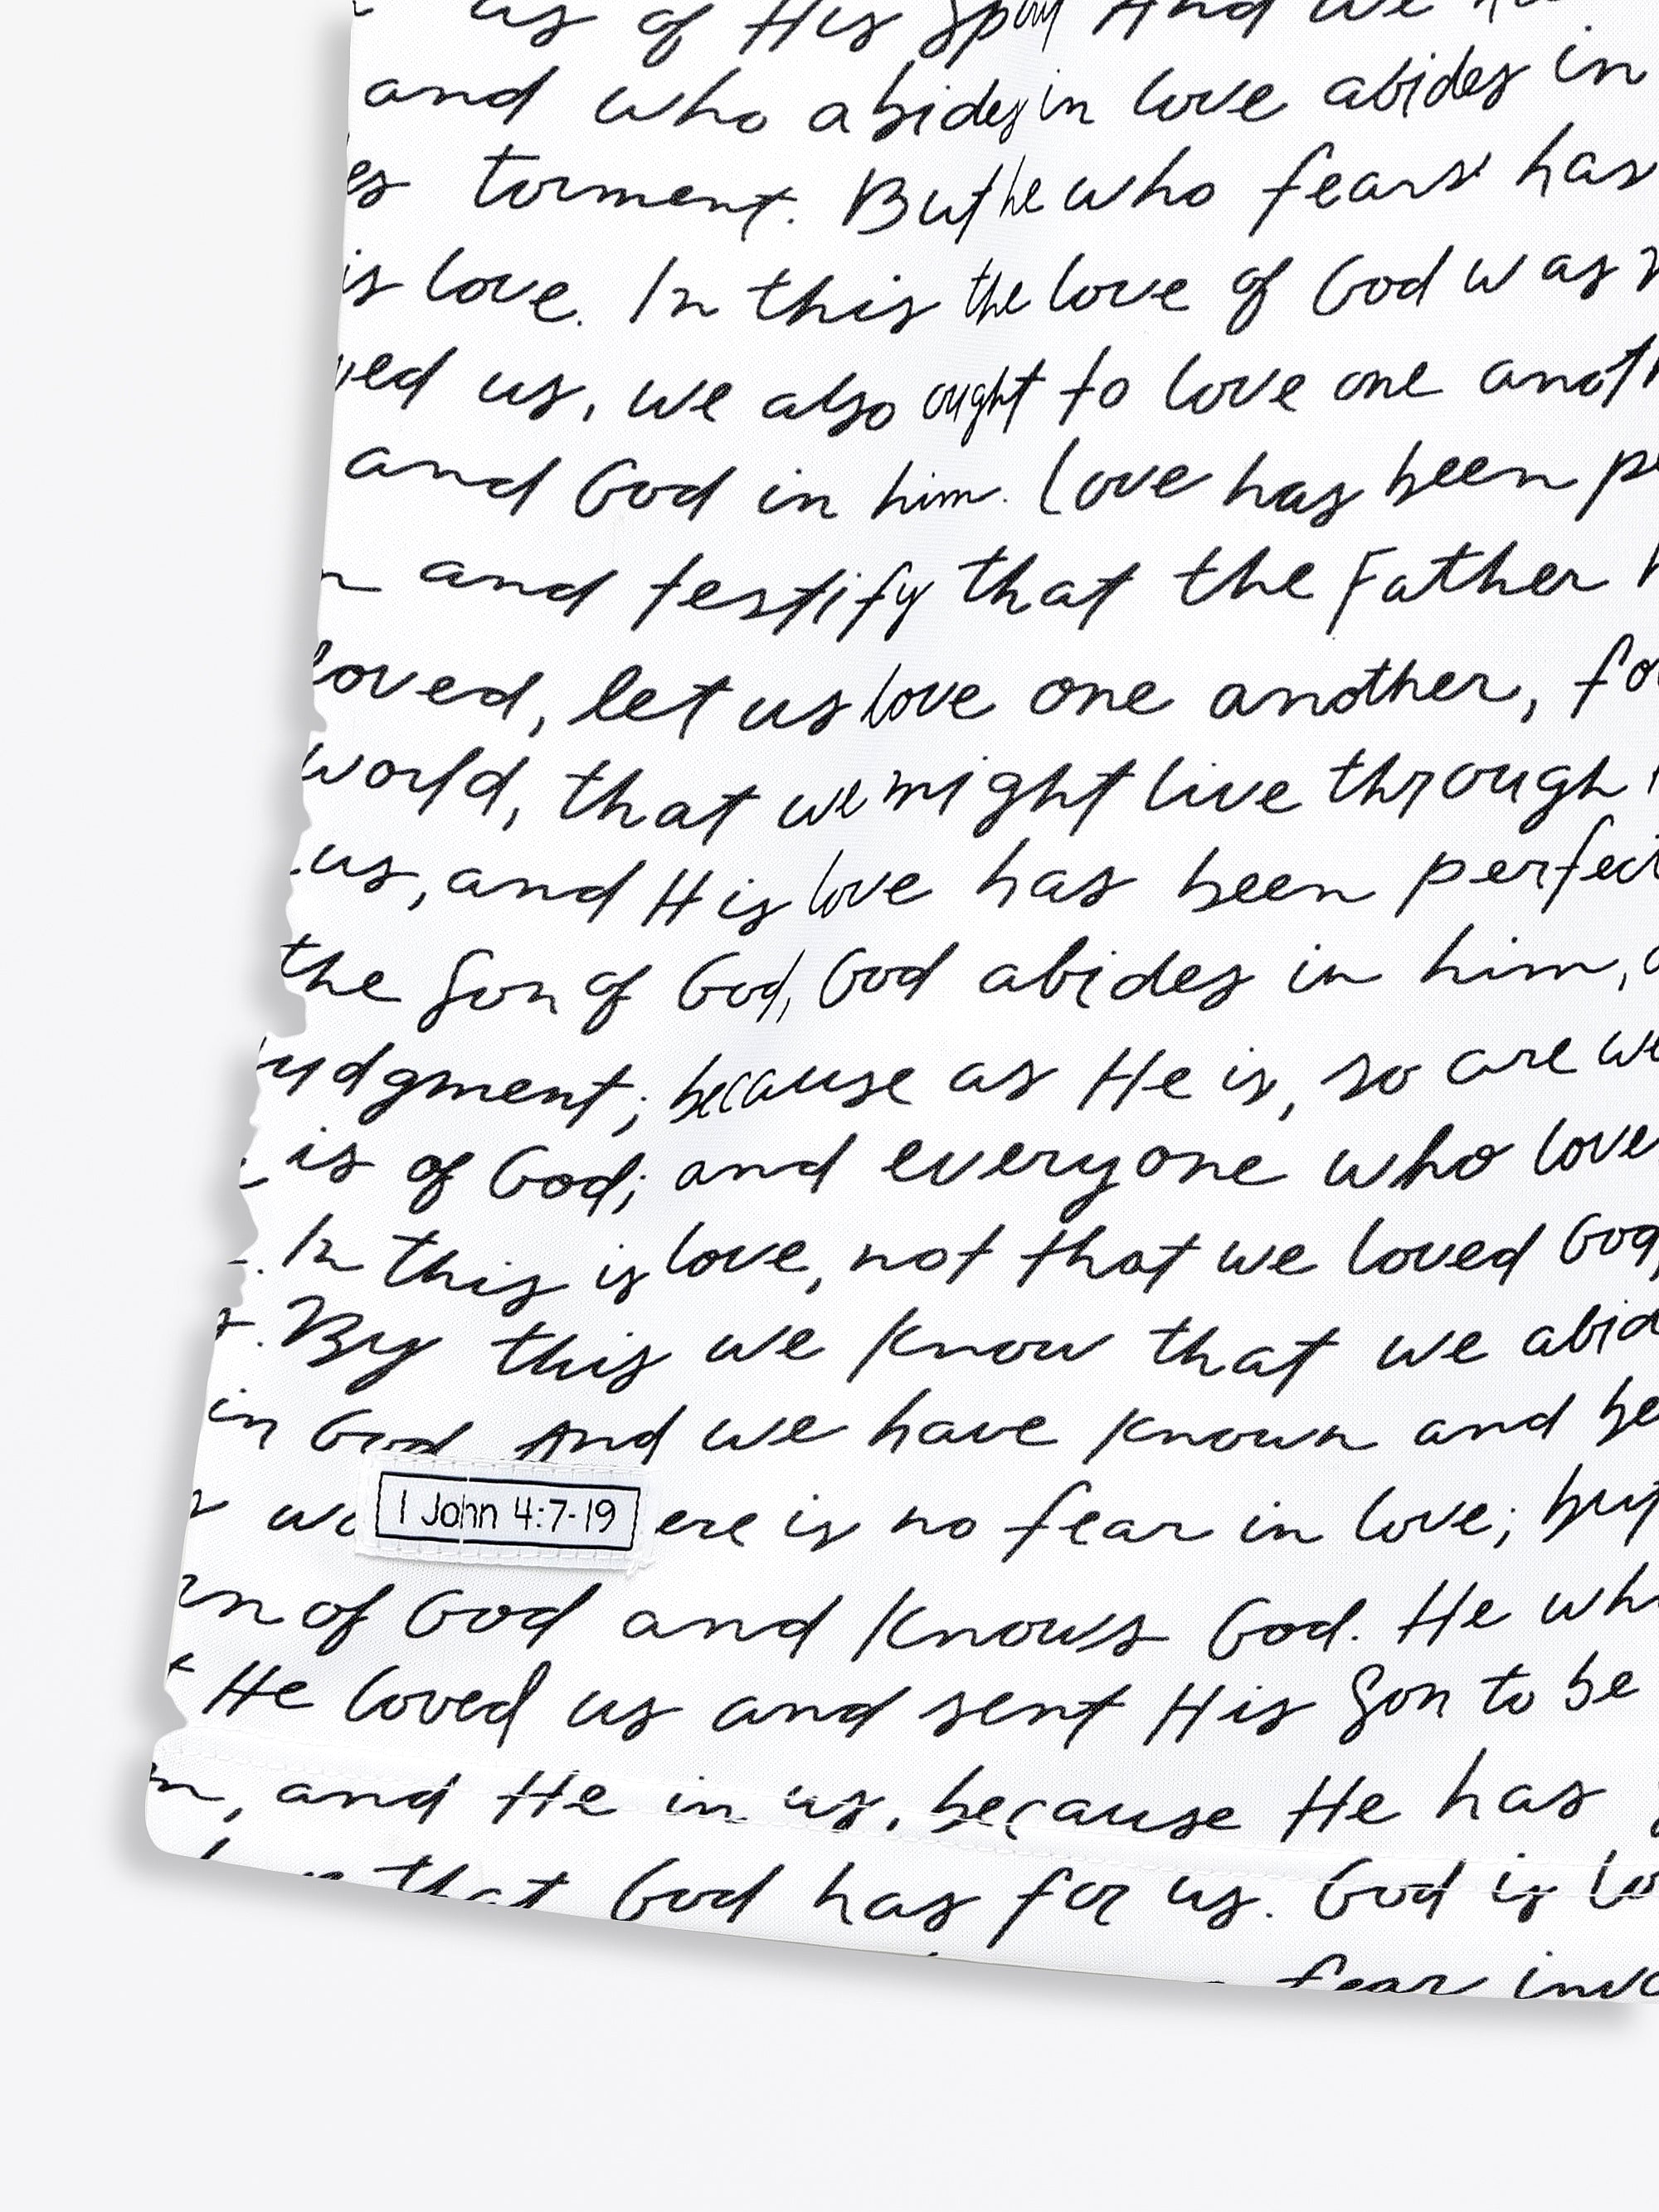 us of His Spirit And we
and who abides in love abides in
es torment. But he who fears has
is love. In this the love of God was
ved us, we also ought to love one anoth
and God in him. Love has been pe
n and testify that the Father h
loved, let us love one another, fo
world, that we might live through
us, and His love has been perfect
the Son of God, God abides in him, a
udgment; because as He is, so are we
is of God; and everyone who love
. In this is love, not that we loved God,
s. By this we know that we abid
in God And we have known and be
wo ere is no fear in love; but
1 John 4:7-19
rn of God and knows God. He who
t He loved us and sent His Son to be
m, and He in us, because He has
that God has for us. God is lo
fear invo